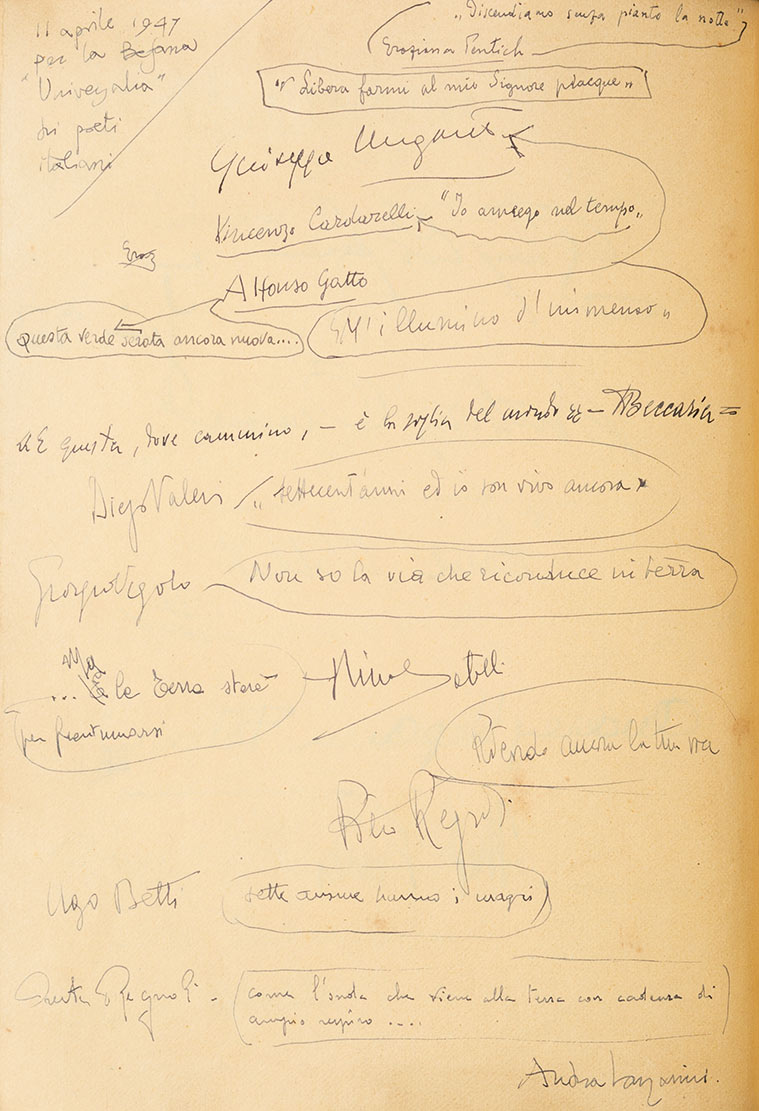 11 aprile 1947
per la Befana
"Universalia"
dei poeti
italiani
„Discendiamo senza pianto la notte"
Pentich
"Libera farmi al mio Signore piacque"
Giuseppe Ungaretti
Vincenzo Cardarelli - "Io annego nel tempo„
Alfonso Gatto
questa verde serata ancora nuova....
"M'illumino d'immenso„
«E questa, dove cammino, - è la soglia del mondo» - Beccaria =
Diego Valeri „settecent'anni ed io son vivo ancora"
Giorgio Vigolo Non so la via che riconduce in terra
... la terra starà
per frantumarsi
Attendo ancora la tua
Ugo Betti sette anime hanno i magri
Regnoli - (come l'onda che viene alla terra con cadenza di
ampio respiro ....
Andrea